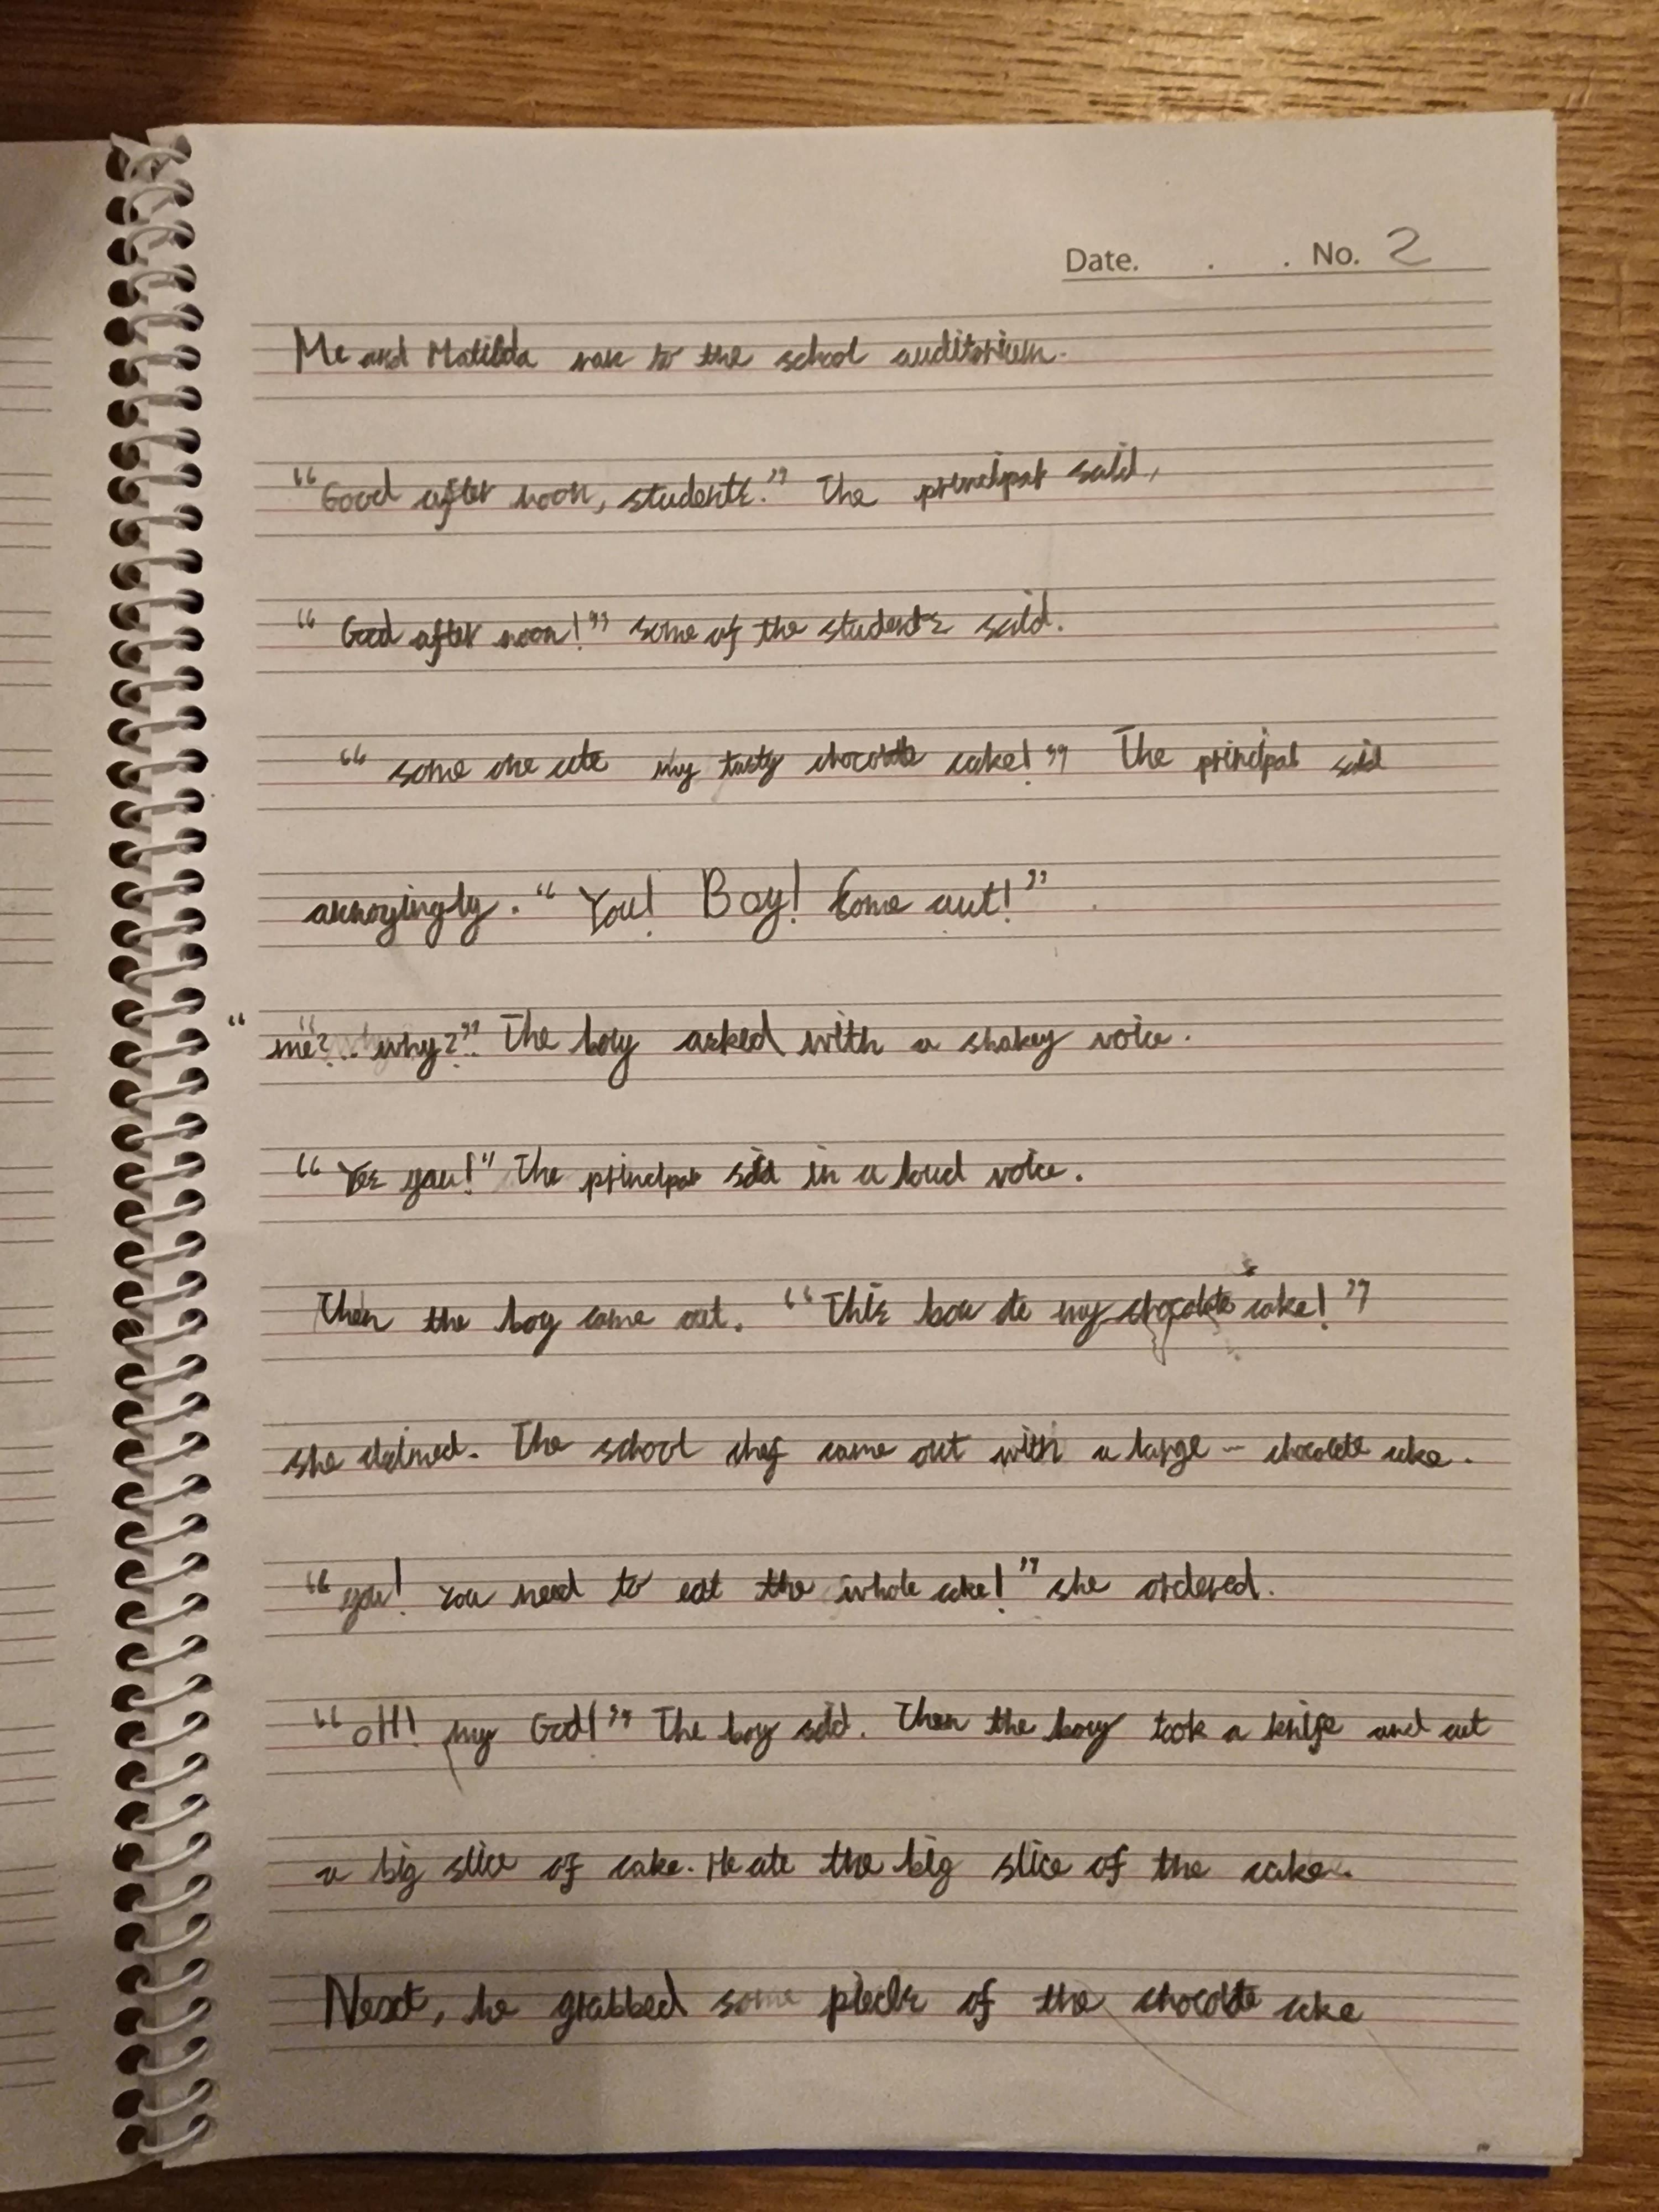 Date. . . No. 2
Me and Matilda ran to the school auditorium.
“Good after noon, students.” The principal said,
“Good after noon!” some of the students said.
“some one ate my tasty chocolate cake!” The principal said
annoyingly. “You! Boy! Come out!”
“me?.. why?”.. The boy asked with a shakey voice.
“Yes you!” The principal said in a loud voice.
Then the boy came out. “This boy ate my chocolate cake!”
she claimed. The school chef came out with a large - chocolate cake.
“you! You need to eat the whole cake!” she ordered.
“oH! my God!” The boy said. Then the boy took a knife and cut
a big slice of cake. He ate the big slice of the cake.
Next, he grabbed some of the chocolate cake